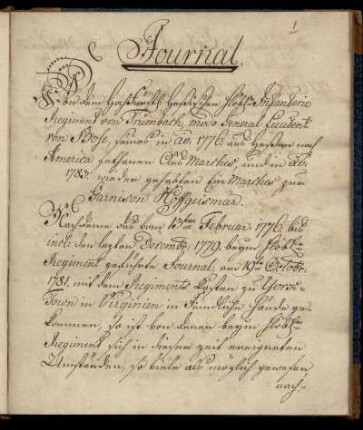 1
Journal
Von dem Hochfürstl. Hessischen löbl. Infanterie
Regiment von Trümbach, modo General Lieutent
von Bose, seines in ao. 1776. aus Hessen nach
America gethanen Aus Marches, und in ao.
1783. wieder gehabten Ein Marches zur
Garnison Hoffgeismar.
Nachdeme das von 13ten Februar. 1776. bis
incl. den lezten Decembr. 1779. beym löbl.
Regiment geführte Journal, am 19ten Octobr.
1781. mit dem Regiments Kasten zu Yorck-
Town in Virginien in Feindliche Hände ge-
kommen, so ist von denen beym löbl.
Regiment sich in dieser Zeit ereigneten
Umständen, so viele als möglich gewesen
nach-